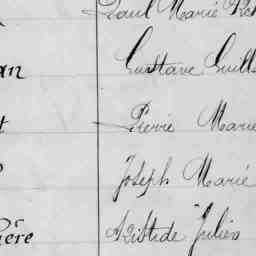 Paul Marie
an Gustave
t Pierre Marie
Joseph Marie
ère Aristide Julien